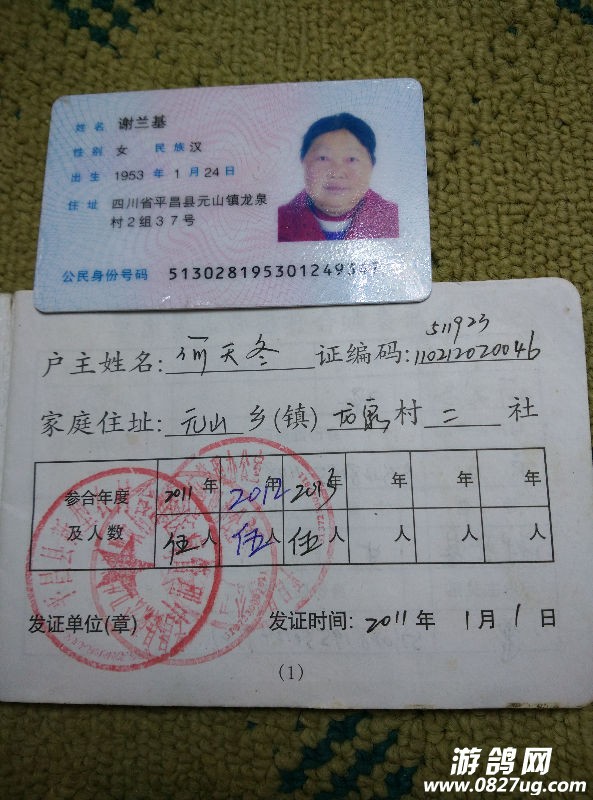 姓名 谢兰基
性别 女 民族 汉
出生 1953 年 1 月 24 日
住址 四川省平昌县元山镇龙泉
村2组37号
公民身份号码
511923
户主姓名: 何天冬 证编码: 110212020046
家庭住址: 元山 乡(镇) 龙泉 村 二 社
参合年度 2011 年 2012 年 2013 年 年 年 年
及人数 伍 人 伍 人 伍 人 人 人 人
发证单位(章) 发证时间: 2011 年 1 月 1 日
(1)
游鸽网
www.0827ug.com